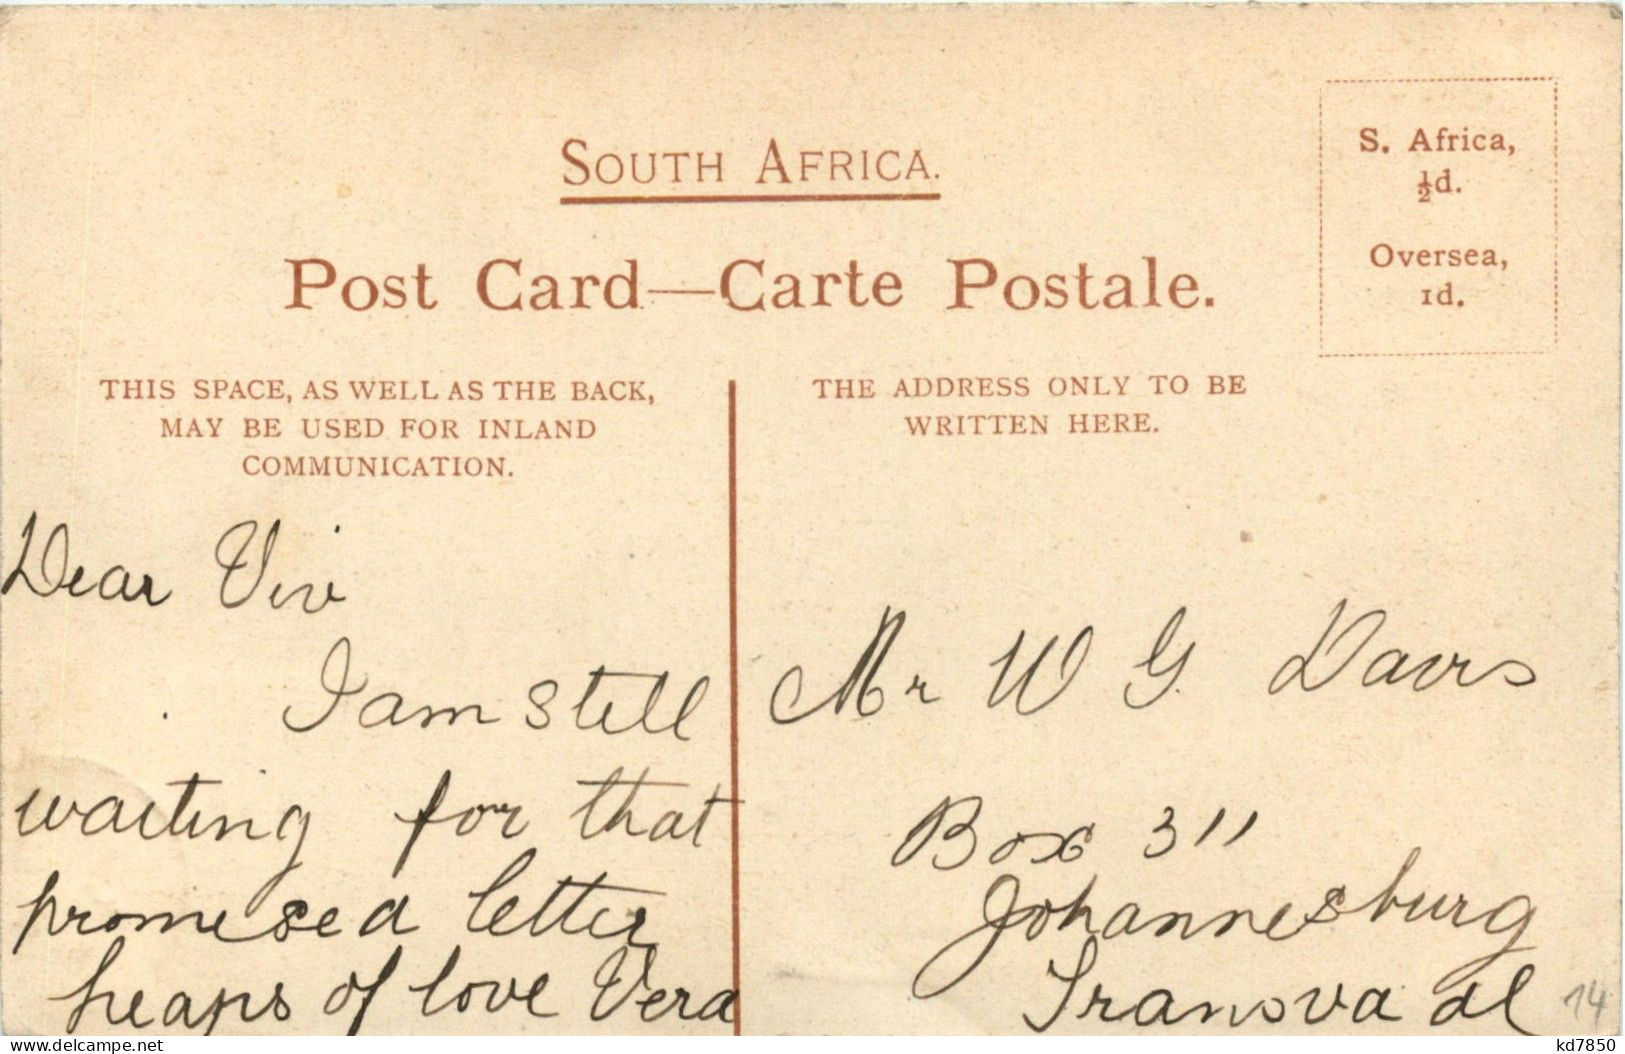 SOUTH AFRICA.
Post Card—Carte Postale.
S. Africa,
½d.
Oversea,
1d.
THIS SPACE, AS WELL AS THE BACK,
MAY BE USED FOR INLAND
COMMUNICATION.
Dear Viv
I am still
waiting for that
promised letter
heaps of love Vera
THE ADDRESS ONLY TO BE
WRITTEN HERE.
Mr W G. Davis
Box 311
Johannesburg
Transvaal
14
delcampe.net
kd7850